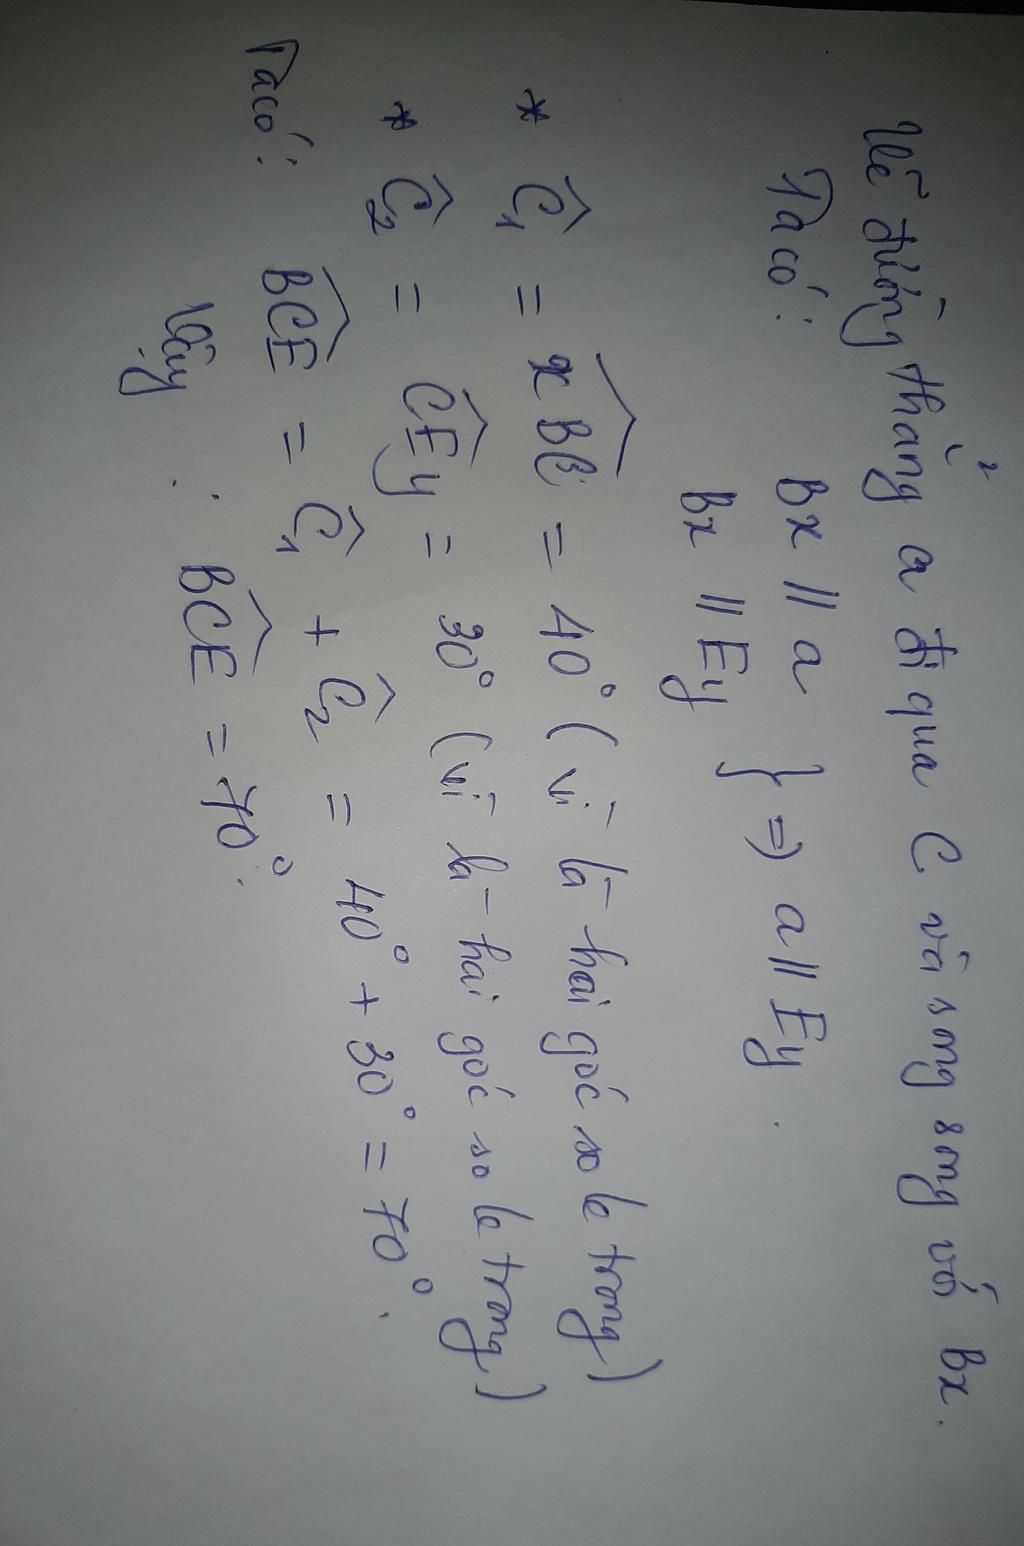 Vẽ đường thẳng a đi qua C và song song với Bx.
Ta có: Bx // a
Bx // Ey } => a // Ey.
* Ĉ₁ = xBC = 40° (vì là hai góc so le trong)
* Ĉ₂ = CEy = 30° (vì là hai góc so le trong)
Ta có: BCE = Ĉ₁ + Ĉ₂ = 40° + 30° = 70°.
Vậy : BCE = 70°.